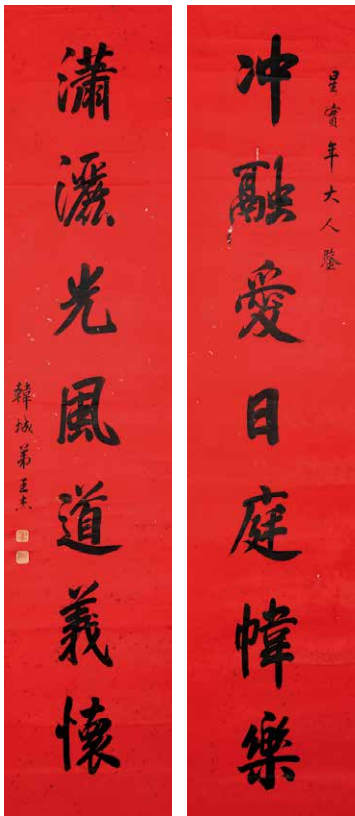 星實年大人鑒
冲融愛日庭幃樂
瀟灑光風道義懷
韓城弟王杰